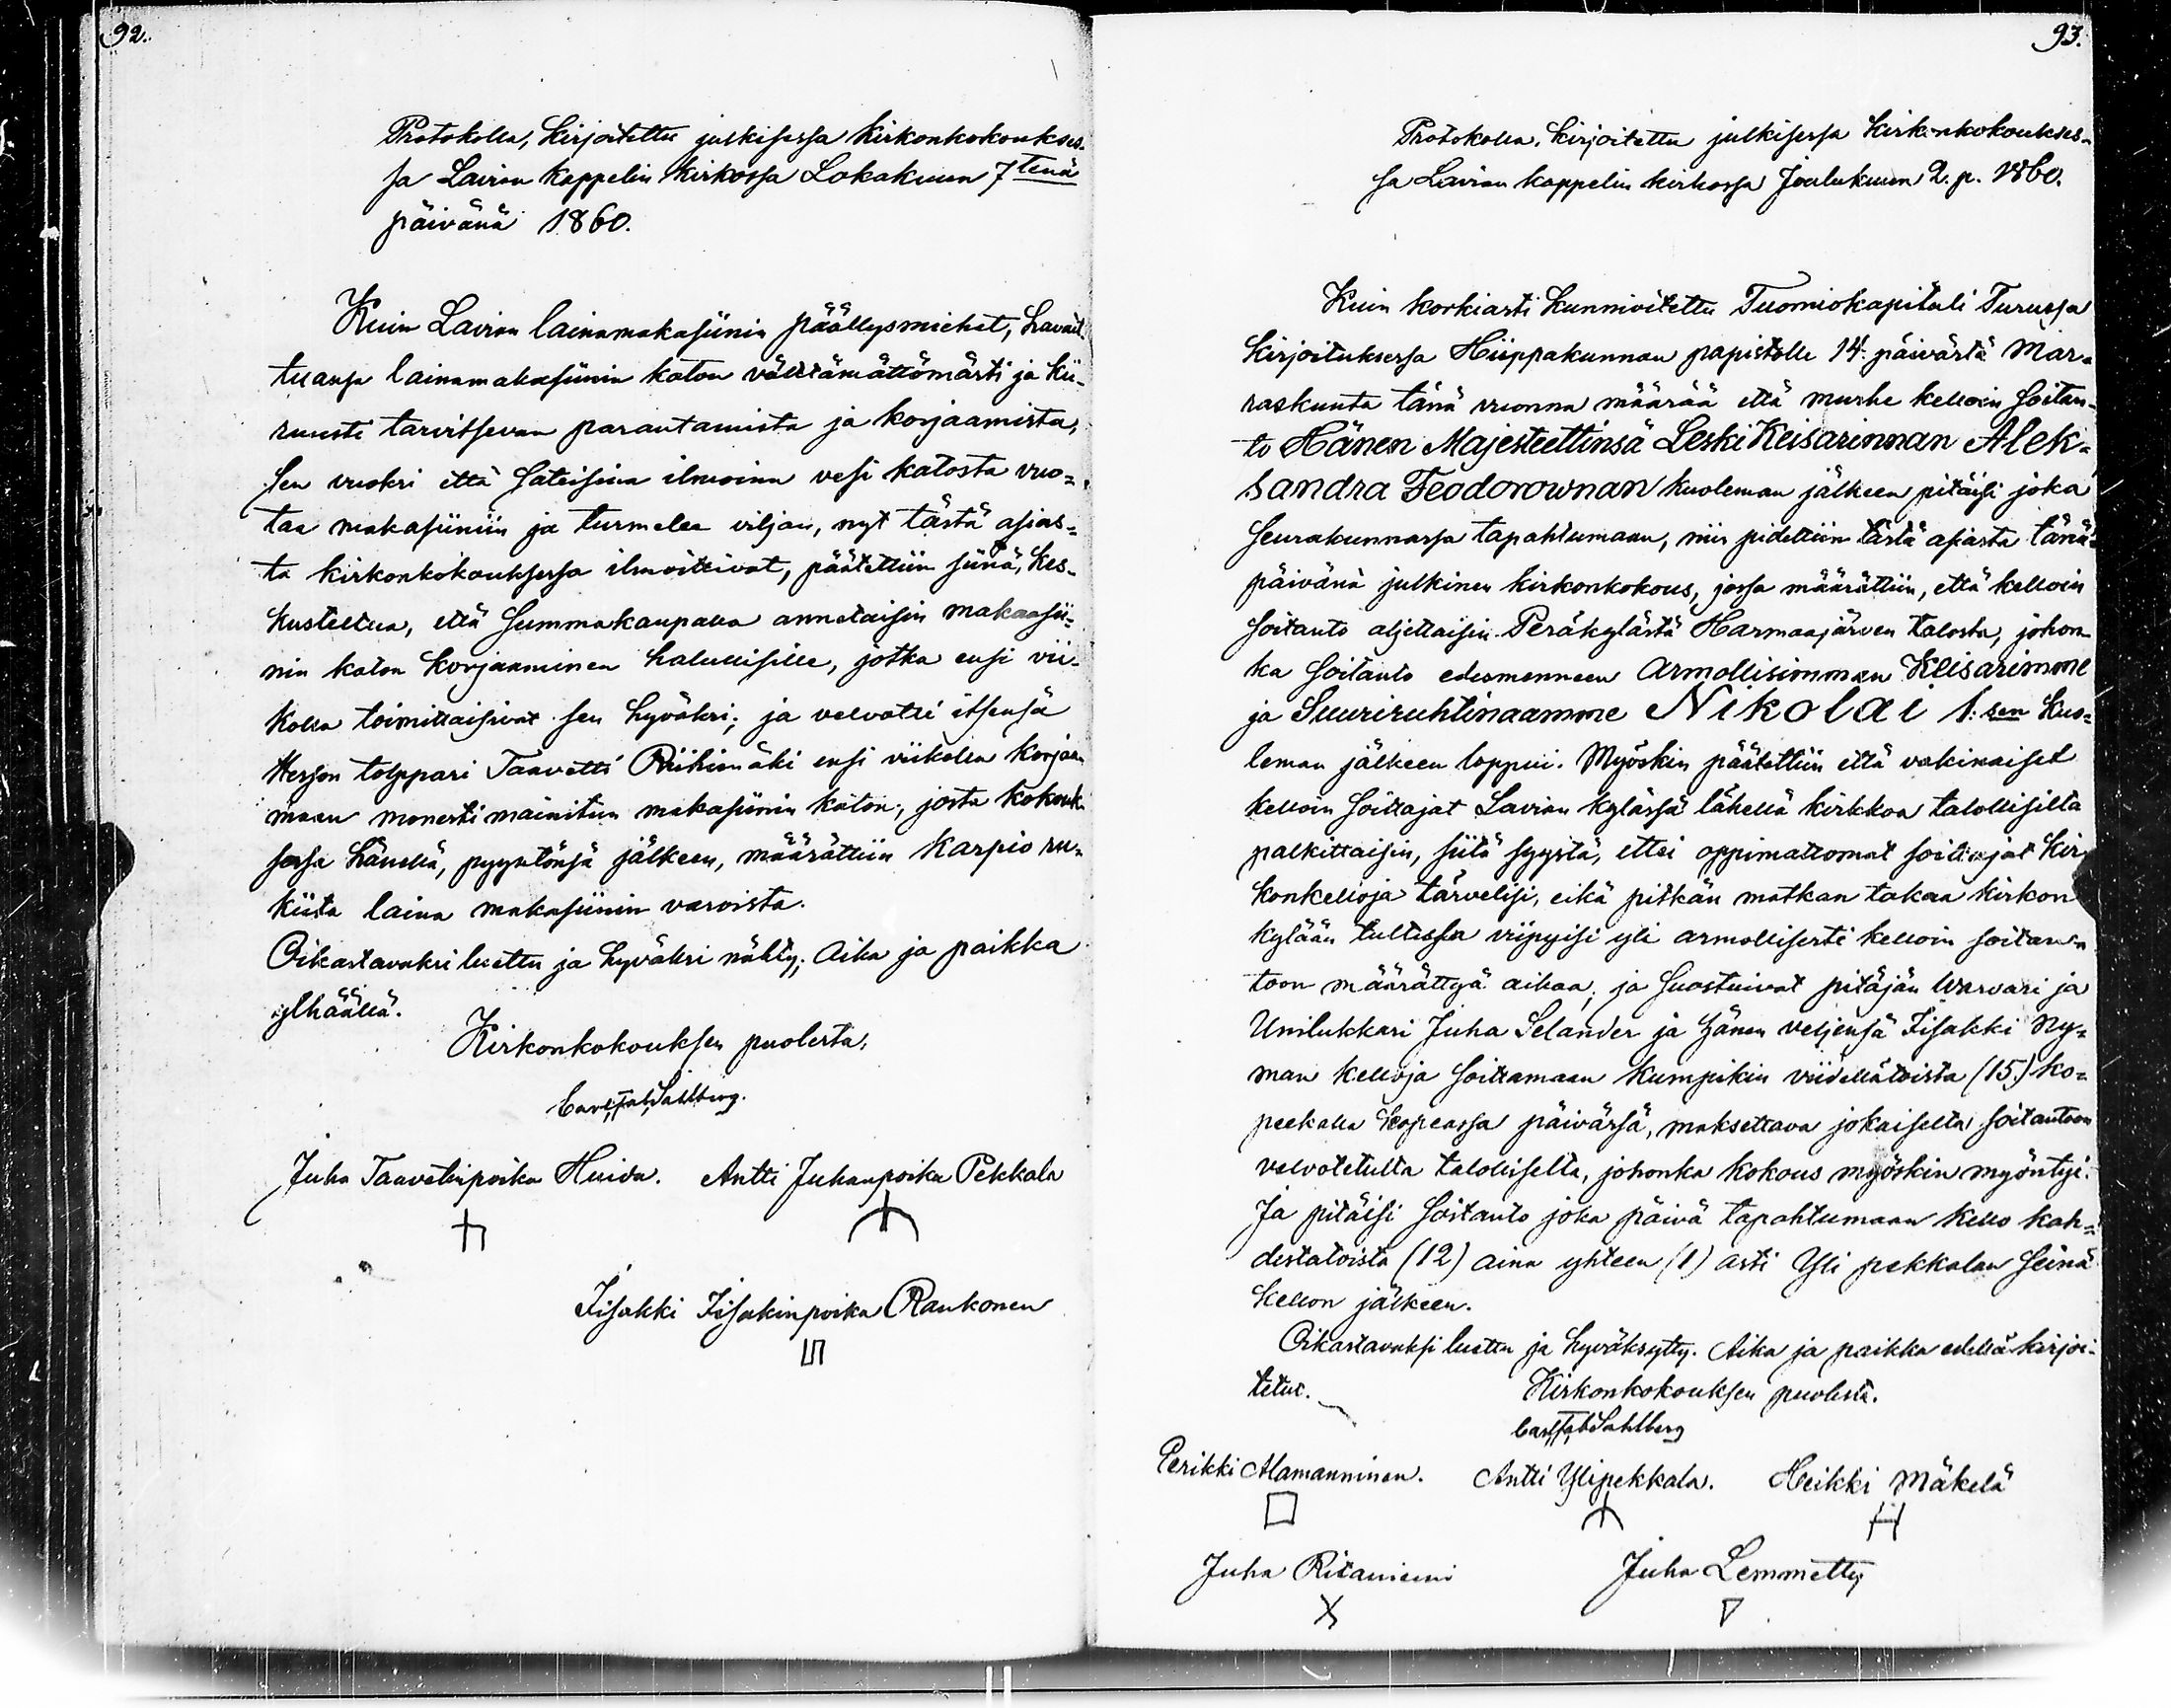 92.
Protokolla, kirjoitettu julkisessa kirkonkokoukses-
sa Lavian kappelin kirkossa Lokakuun 7 tenä
päivänä 1860.
Kuin Lavian lainamakasiinin päällysmiehet, havait-
tuansa lainamakasiinin katon välttämättömästi ja kii-
ruusti tarvitsevan parantamista ja korjaamista,
sen vuoksi että sateisina ilmoina vesi katosta vuo-
taa makasiiniin ja turmelee viljan, nyt tästä asias-
ta kirkonkokouksessa ilmoittivat, päätettiin siinä, kes-
kusteltua, että summakaupalla annetaisin makaasii-
nin katon korjaaminen halullisille, jotka ensi vii-
kolla toimittaisivat sen hyväksi; ja velvotti itsensä
Herson tolppari Taavetti Riihimäki ensi viikolla korjaa-
maan monesti mainitun makasiinin katon, josta kokouk-
sessa hänellä, pyyntönsä jälkeen, määrättiin karpio ru-
kiita laina makasiinin varoista.
Oikastavaksi luettu ja hyväksi nähty; Aika ja paikka
ylhäällä.
Kirkonkokouksen puolesta,
Carl Fab. Sahlberg.
Juha Taavetinpoika Huida. Antti Juhanpoika Pekkala
Iisakki Iisakinpoika Raukonen
93.
Protokolla, kirjoitettu julkisessa kirkonkokoukses-
sa Lavian kappelin kirkossa Joulukuun 2. p. 1860.
Kuin korkiasti kunnioitettu Tuomiokapituli Turussa
kirjoituksessa Hiippakunnan papistolle 14. päivästä Mar-
raskuuta tänä vuonna määrää että murhe kelloin soitan-
to Hänen Majesteettinsä Leski Keisarinnan Alek-
sandra Feodorownan kuoleman jälkeen pitäisi joka
seurakunnassa tapahtumaan, niin pidettiin tästä asiasta tänä
päivänä julkinen kirkonkokous, jossa määrättiin, että kelloin
soitanto aljettaisin Peräkylästä Harmaajärven talosta, johon-
ka soitanto edesmenneen Armollisimman Keisarimme
ja Suuriruhtinaamme Nikolai 1:sen kuo-
leman jälkeen loppui. Myöskin päätettiin että vakinaiset
kelloin soittajat Lavian kylässä lähellä kirkkoa talollisilta
palkittaisin, siitä syystä, ettei oppimattomat soittajat kir-
konkelloja tärvelisi, eikä pitkän matkan takaa kirkon
kylään tultissa viipyisi yli armollisesti kelloin soitan-
toon määrättyä aikaa; ja suostuivat pitäjän Warvari ja
Unilukkari Juha Selander ja hänen veljensä Iisakki Ny-
man kelloja soittamaan kumpikin viidellätoista (15.) ko-
peekalla hopeassa päivässä, maksettava jokaiselta soitantoon
velvotetulta talolliselta, johonka kokous myöskin myöntyi.
Ja pitäisi soitanto joka päivä tapahtumaan kello kah-
destatoista (12) aina yhteen (1) asti Yli pekkalan seinä
kellon jälkeen.
Oikastavaksi luettu ja hyväksytty. Aika ja paikka edellä kirjoi-
tetut.
Kirkonkokouksen puolesta.
Carl Fab Sahlberg
Perikki Alamanninen. Antti Ylipekkala. Heikki Mäkelä
Juha Ritaniemi Juha Lemmetty